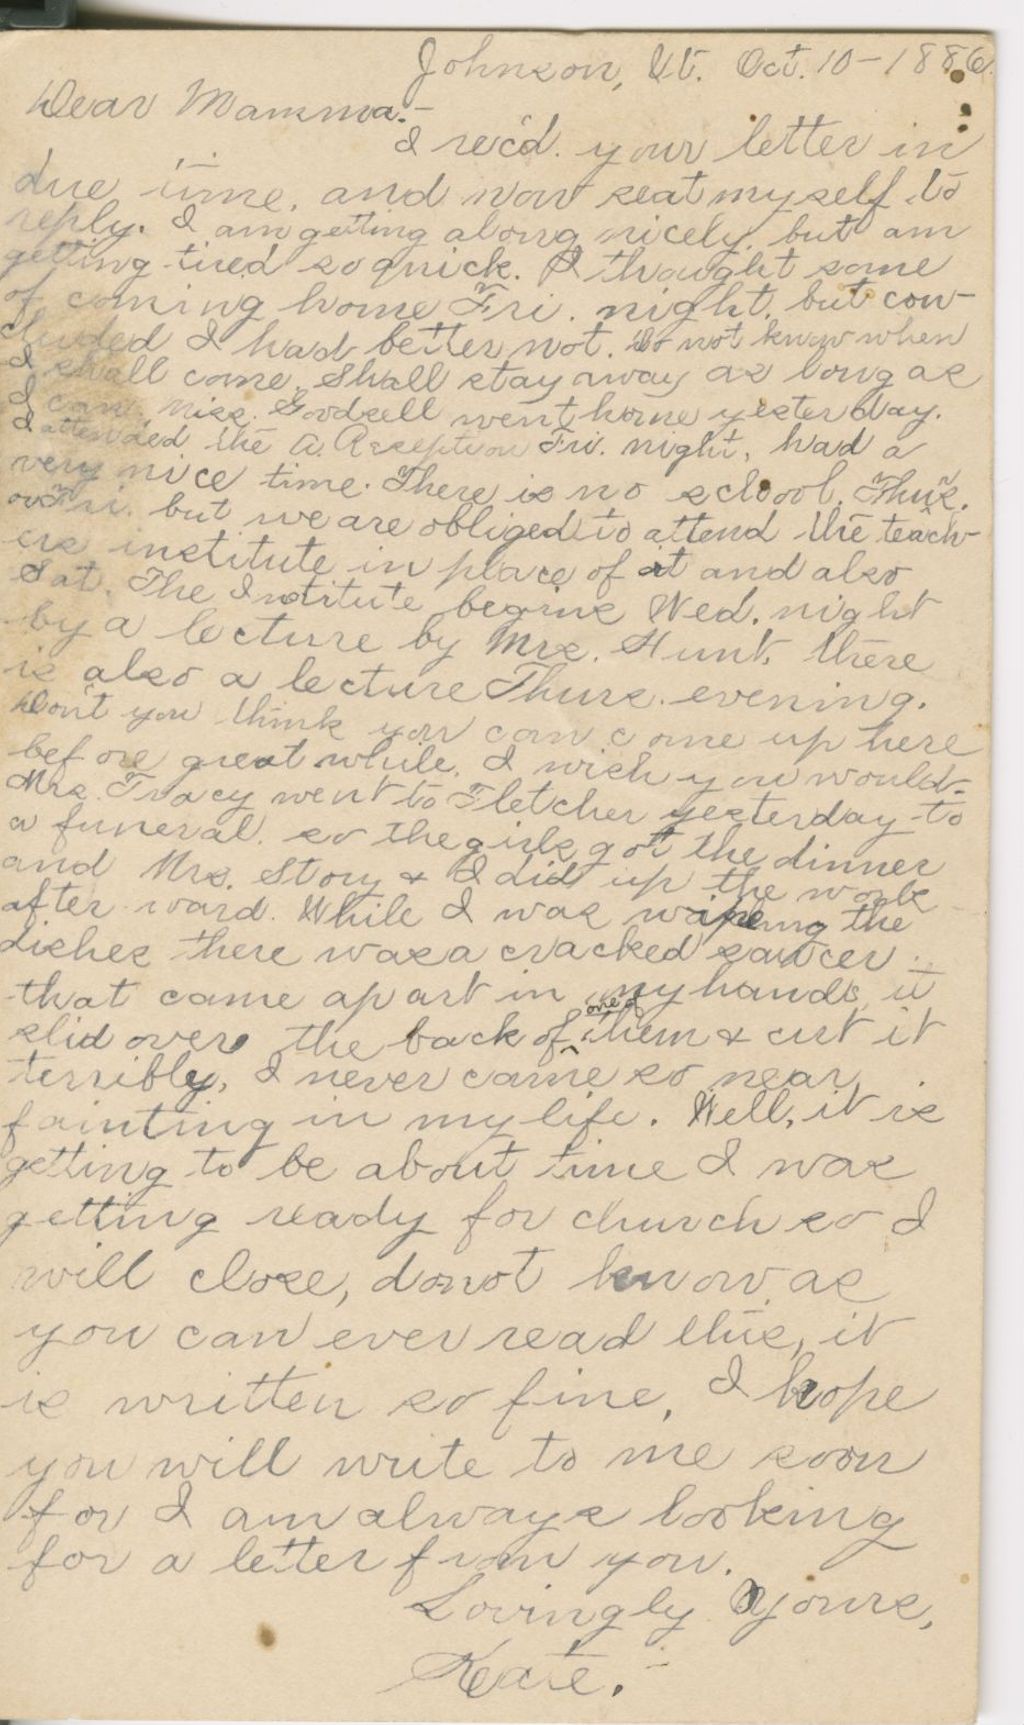 Johnson, Vt. Oct. 10-1886.
Dear Mamma.-
I rec'd. your letter in
due time. and now seat myself to
reply. I am getting along nicely. but am
getting tired so quick. I thought some
of coming home Fri. night. but con-
cluded I had better not. Do not know when
I shall come. Shall stay away as long as
I can. Miss. Goodsell went home yesterday.
I attended the A. Reception Fri. night, had a
very nice time. There is no school. Thurs.
or Fri. but we are obliged to attend the teach-
ers institute in place of it and also
Sat. The Institute begins Wed. night
by a lecture by Mrs. Hunt, there
is also a lecture Thurs. evening.
Don't you think you can come up here
before great while. I wish you would-
Mrs. Tracy went to Fletcher yesterday to
a funeral. so the girls got the dinner
and Mrs. Story & I did up the work
after ward. While I was wiping the
dishes there was a cracked saucer
that came apart in my hands, it
slid over the back of one of them & cut it
terribly, I never came so near
fainting in my life. Well, it is
getting to be about time I was
getting ready for church so I
will close, do not know as
you can ever read this, it
is written so fine, I hope
you will write to me soon
for I am always looking
for a letter from you.
Lovingly Yours,
Kate.-